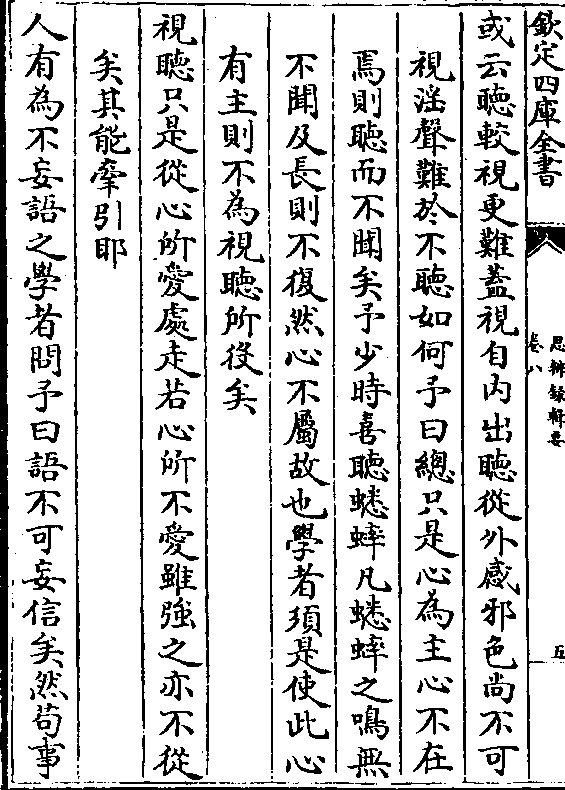 欽定四庫全書
思辨錄輯要
卷八
五
或云聽較視更難蓋視自内出聽從外感邪色尚不可
視滛聲難於不聽如何予曰總只是心為主心不在
焉則聽而不聞矣予少時喜聽蟋蟀凡蟋蟀之鳴無
不聞及長則不復然心不屬故也學者須是使此心
有主則不為視聽所役矣
視聽只是從心所愛處走若心所不愛雖強之亦不從
矣其能牽引耶
人有為不妄語之學者問予曰語不可妄信矣然苟事